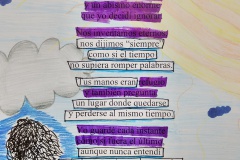 y un abismo enorme
que yo decidí ignorar.
Nos inventamos eternos
nos dijimos "siempre"
como si el tiempo
no supiera romper palabras.
Tus manos eran refugio
y también pregunta
un lugar donde quedarse
y perderse al mismo tiempo.
Yo guardé cada instante
como si fuera el último
aunque nunca entendí